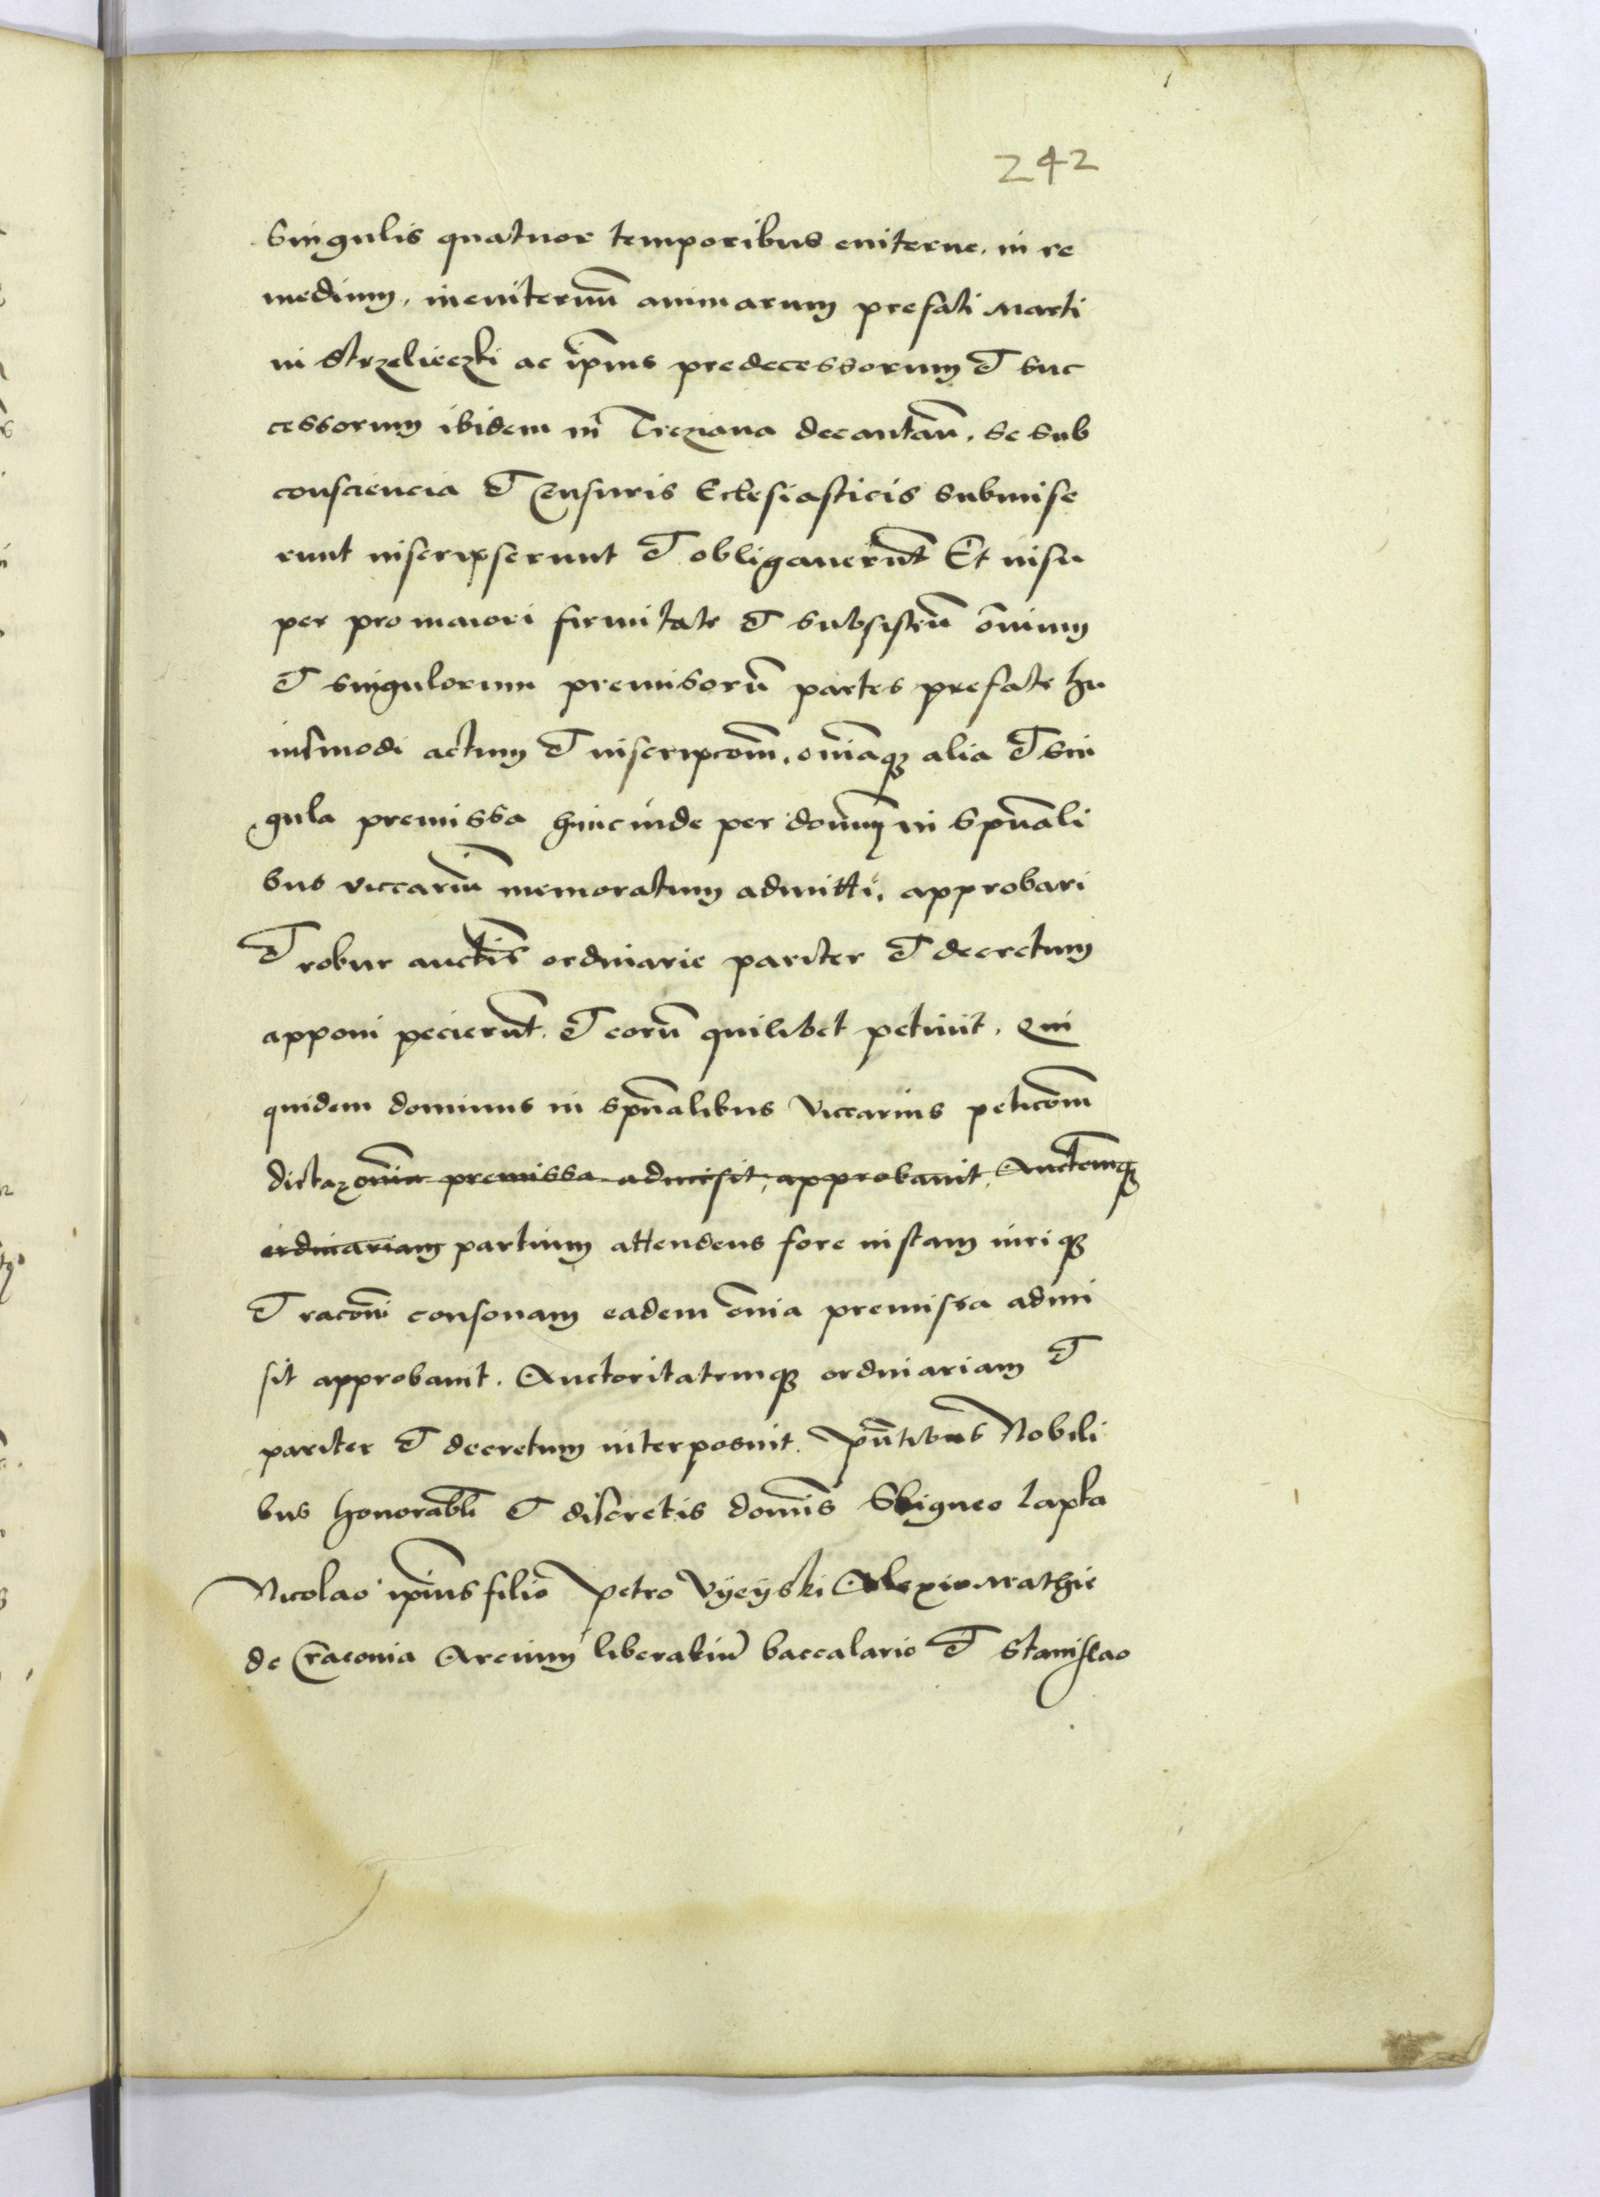 242
singulis quatuor temporibus eviterne. in re
medium. in eviternū animarum prefati Marti
ni Strzelieczki ac ip̄ius predecessorum et suc
cessorum ibidem in Trcziana decantan̄. se sub
consciencia et Censuris Eclesiasticis submise
runt inscripserunt et obligaverūt Et insu
per pro maiori firmitate et subsisten̄ ōnium
et singulorum premisorū partes prefate hu
iusmodi actum et inscripcōm, omīaqꝫ alia et sin
gula premissa hincinde per domīm in spūali
bus viccariū memoratum admitti, approbari
et robur auctīs ordinarie pariter et decretum
apponi pecierūt. et eorū quilibet petivit. Qui
quidem dominus in spūalibus Viccarius peticōm
dictaꝝ omīa premissa admisit, approbavit, Auctēmqꝫ
ordinariam partium attendens fore iustam iuriqꝫ
et racōni consonam eadem ōnia premissa admi
sit approbavit. Auctoritatemqꝫ ordinariam et
pariter et decretum interposuit. Pn̄tibus Nobili
bus honorabīl et discretis domīs Sbigneo Lapka
Nicolao ip̄ius filio Petro Vyeyski Alexio Mathie
de Cracovia Arcium liberaliū baccalario et Stanislao